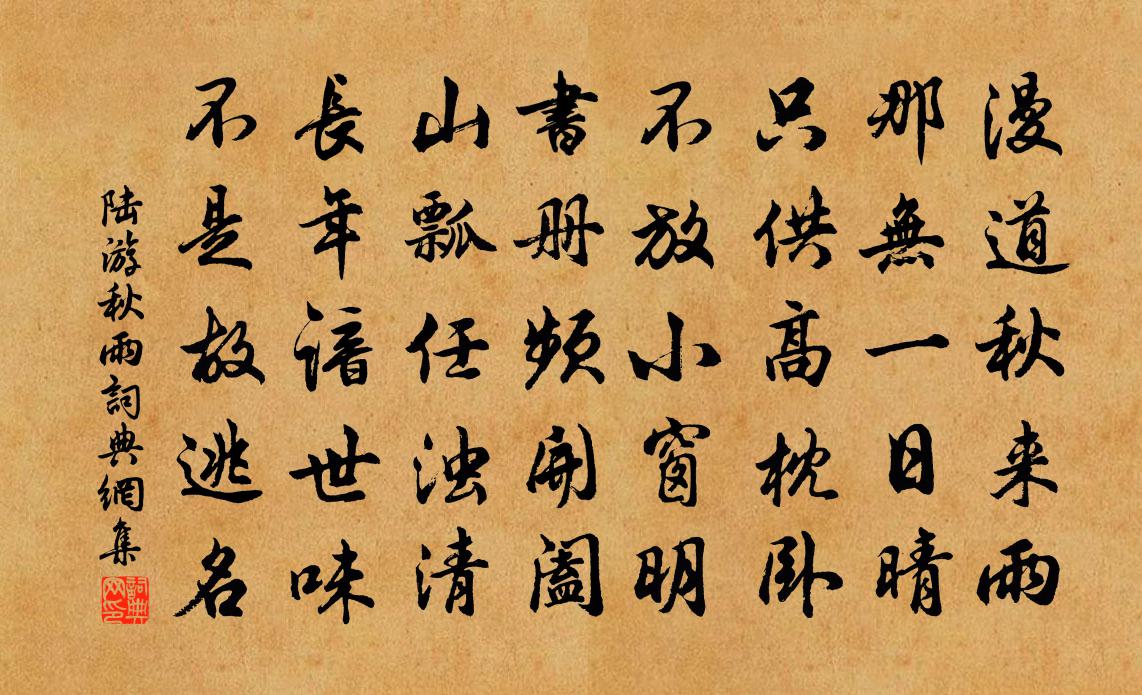 漫道秋来雨
那無一日晴
只供高枕卧
不放小窗明
書册頻開闔
山瓢任浊清
長年諳世味
不是故逃名
陆游秋雨詞典網集
詞典
网印